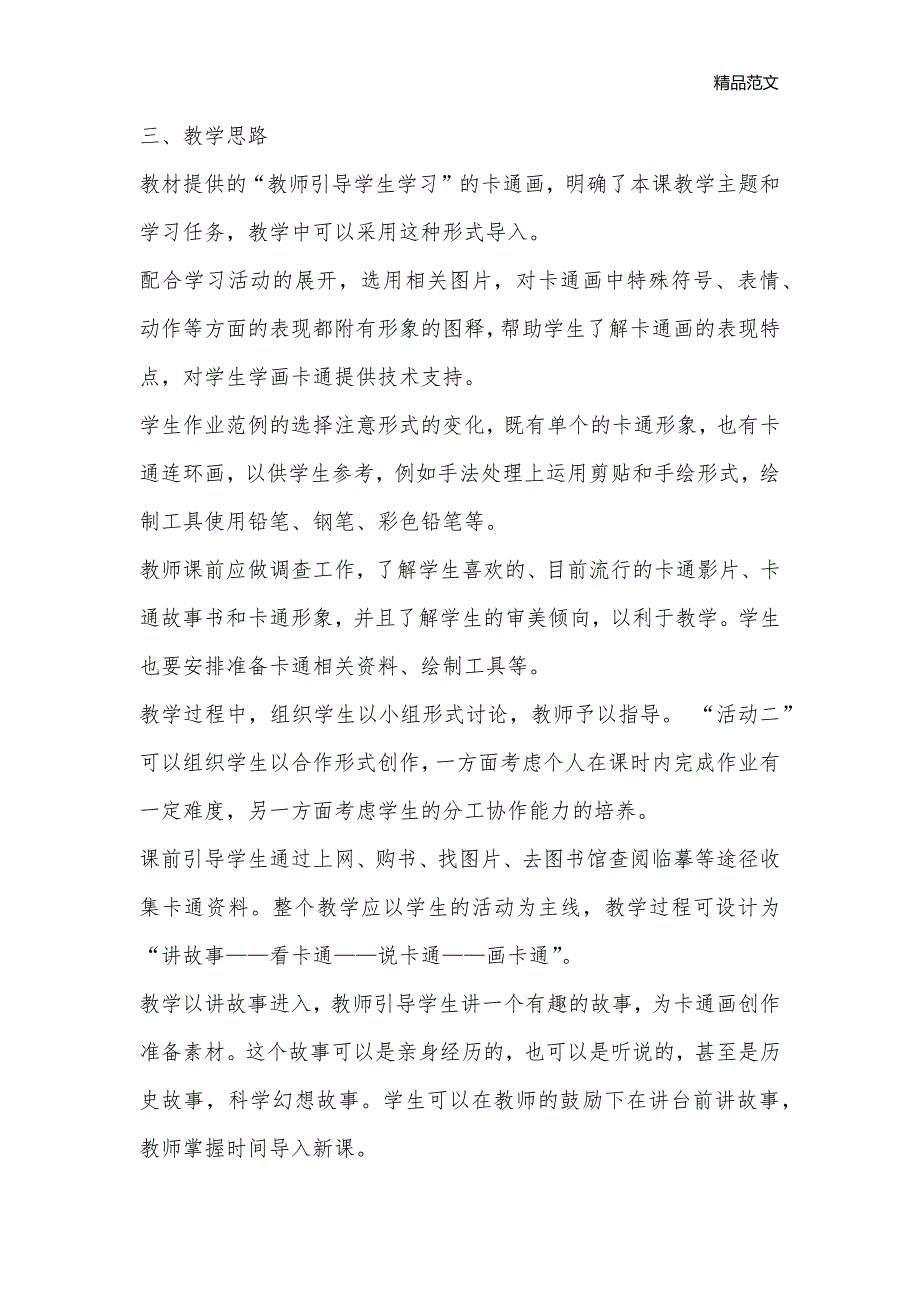 精品范文
三、教学思路
教材提供的“教师引导学生学习”的卡通画，明确了本课教学主题和
学习任务，教学中可以采用这种形式导入。
配合学习活动的展开，选用相关图片，对卡通画中特殊符号、表情、
动作等方面的表现都附有形象的图释，帮助学生了解卡通画的表现特
点，对学生学画卡通提供技术支持。
学生作业范例的选择注意形式的变化，既有单个的卡通形象，也有卡
通连环画，以供学生参考，例如手法处理上运用剪贴和手绘形式，绘
制工具使用铅笔、钢笔、彩色铅笔等。
教师课前应做调查工作，了解学生喜欢的、目前流行的卡通影片、卡
通故事书和卡通形象，并且了解学生的审美倾向，以利于教学。学生
也要安排准备卡通相关资料、绘制工具等。
教学过程中，组织学生以小组形式讨论，教师予以指导。 “活动二”
可以组织学生以合作形式创作，一方面考虑个人在课时内完成作业有
一定难度，另一方面考虑学生的分工协作能力的培养。
课前引导学生通过上网、购书、找图片、去图书馆查阅临摹等途径收
集卡通资料。整个教学应以学生的活动为主线，教学过程可设计为
“讲故事——看卡通——说卡通——画卡通”。
教学以讲故事进入，教师引导学生讲一个有趣的故事，为卡通画创作
准备素材。这个故事可以是亲身经历的，也可以是听说的，甚至是历
史故事，科学幻想故事。学生可以在教师的鼓励下在讲台前讲故事，
教师掌握时间导入新课。